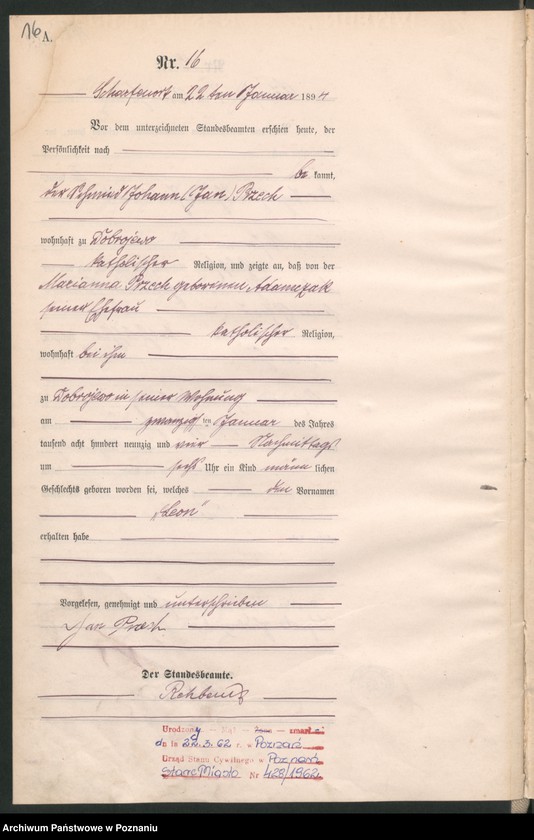 16
A.
Nr. 16
Scharfenort am 22ten Januar 1894
Vor dem unterzeichneten Standesbeamten erschien heute, der
Persönlichkeit nach
be kannt,
der Schmied Johann (Jan) Przech
wohnhaft zu Dobrojewo
katholischer Religion, und zeigte an, daß von der
Marianna Przech geborenen Adamczak
seiner Ehefrau
katholischer Religion,
wohnhaft bei ihm
zu Dobrojewo in seiner Wohnung
am zwanzigsten Januar des Jahres
tausend acht hundert neunzig und vier Nachmittags
um sechs Uhr ein Kind männ lichen
Geschlechts geboren worden sei, welches den Vornamen
„Leon“
erhalten habe
Vorgelesen, genehmigt und unterschrieben
Jan
Der Standesbeamte.
Urodzony zmarł
dnia 22.3.62 r. w Poznań
Urząd Stanu Cywilnego w Poznań
Stare Miasto Nr 428/1962
Archiwum Państwowe w Poznaniu